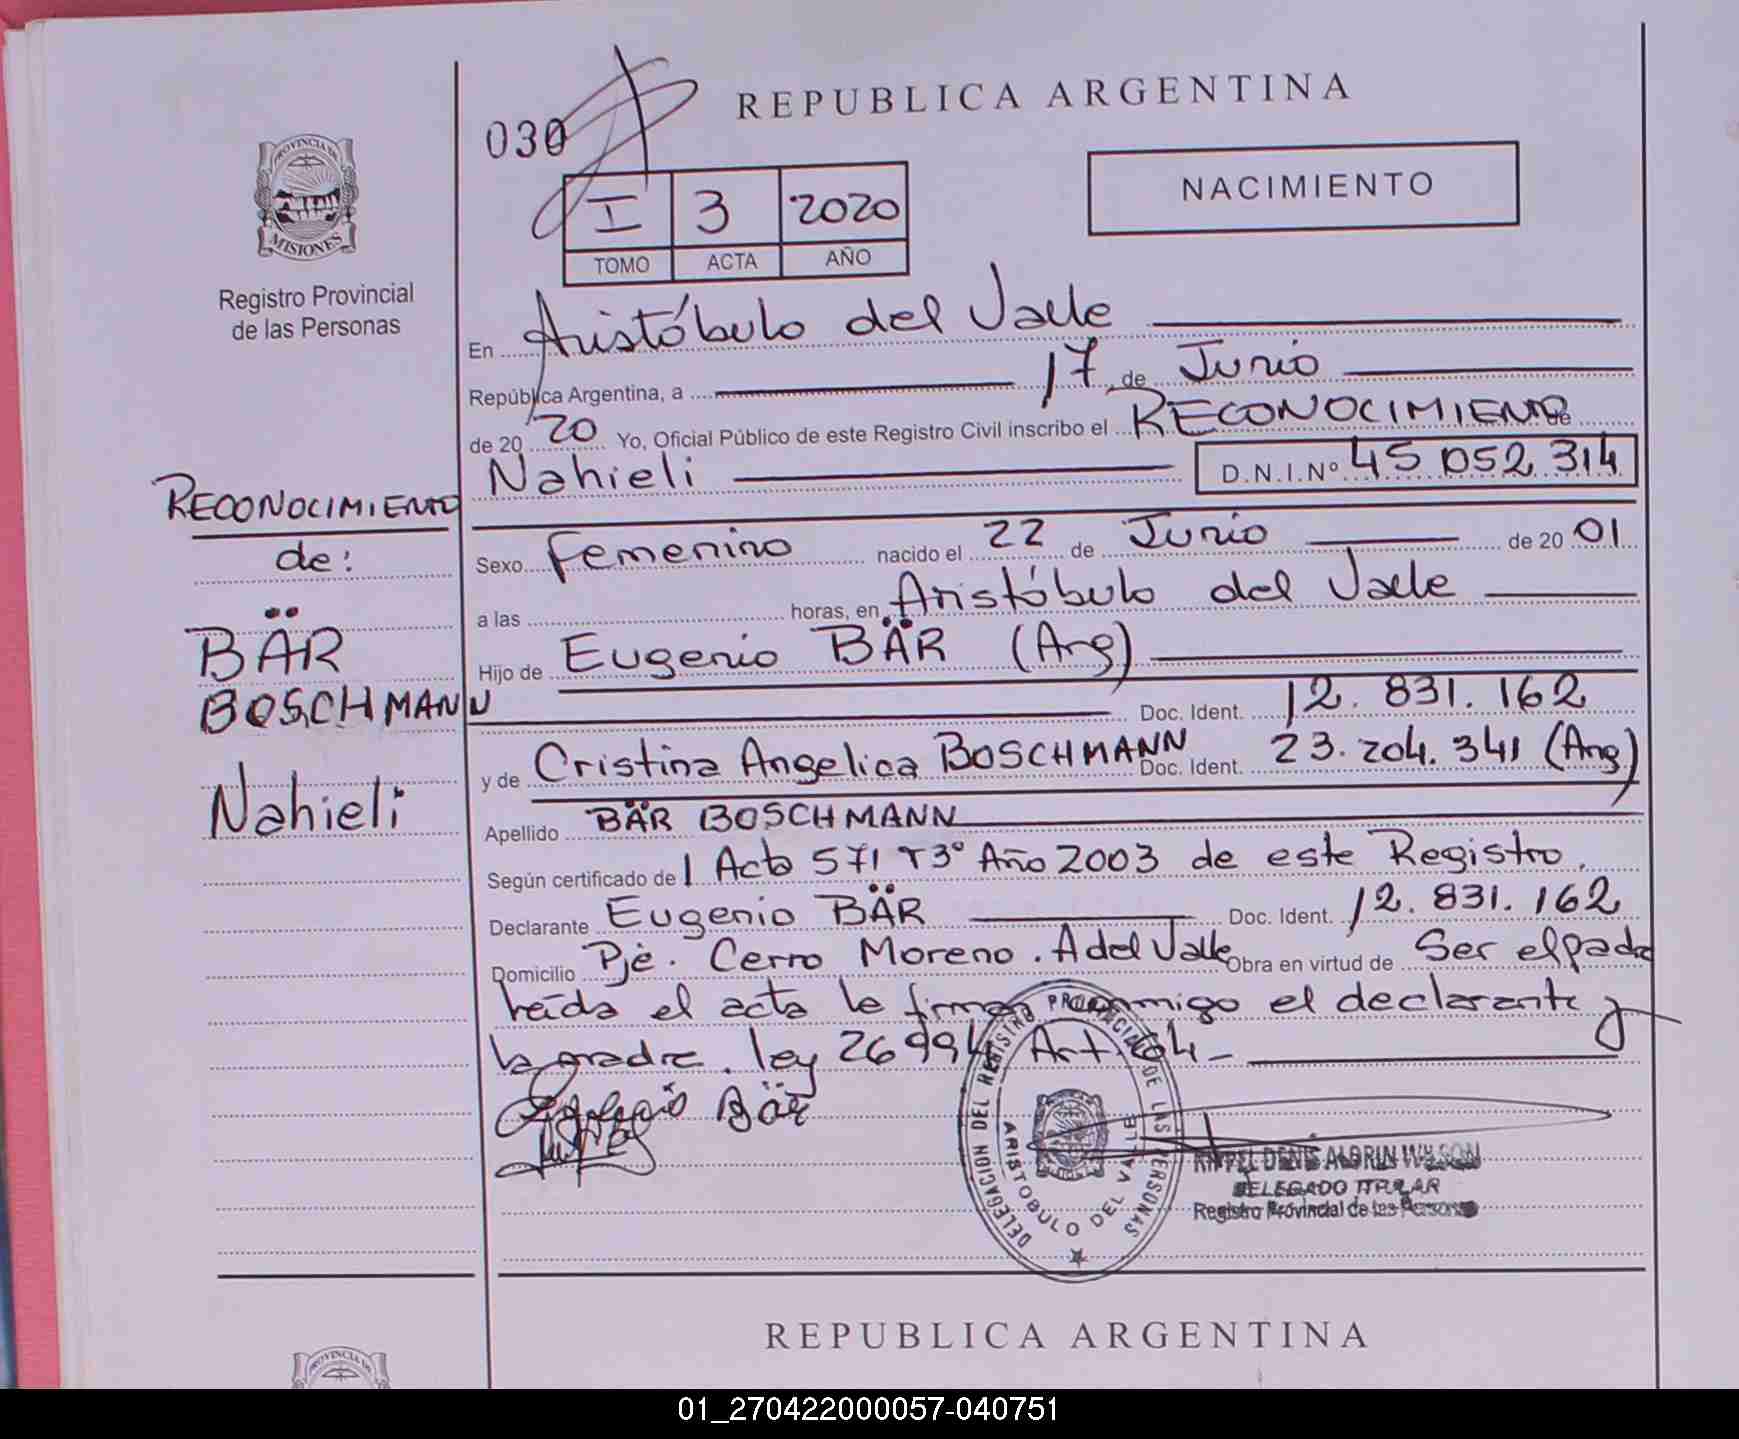 REPUBLICA ARGENTINA
030
NACIMIENTO
I 3 2020
TOMO ACTA AÑO
PROVINCIA DE
MISIONES
Registro Provincial
de las Personas
En Aristóbulo del Valle
República Argentina, a 17 de Junio
de 20 20 Yo, Oficial Público de este Registro Civil inscribo el RECONOCIMIENTO de
Nahieli D.N.I.Nº 45.052.314
RECONOCIMIENTO
de:
BÄR
BOSCHMANN
Nahieli
Sexo Femenino nacido el 22 de Junio de 20 01
a las horas, en Aristóbulo del Valle
Hijo de Eugenio BÄR (Arg)
Doc. Ident. 12.831.162
y de Cristina Angelica BOSCHMANN Doc. Ident. 23.204.341 (Arg)
Apellido BÄR BOSCHMANN
Según certificado de 1 Acta 571 T3º Año 2003 de este Registro.
Declarante Eugenio BÄR Doc. Ident. 12.831.162
Domicilio Pje. Cerro Moreno. A del Valle Obra en virtud de Ser el padre
leída el acta la firma conmigo el declarante y
la madre. ley 26994 Art. 64-
Eugenio Bär
DELEGACION DEL REGISTRO PROVINCIAL DE LAS PERSONAS
ARISTOBULO DEL VALLE
DELEGADO TITULAR
Registro Provincial de las Personas
REPUBLICA ARGENTINA
PROVINCIA DE
01_270422000057-040751